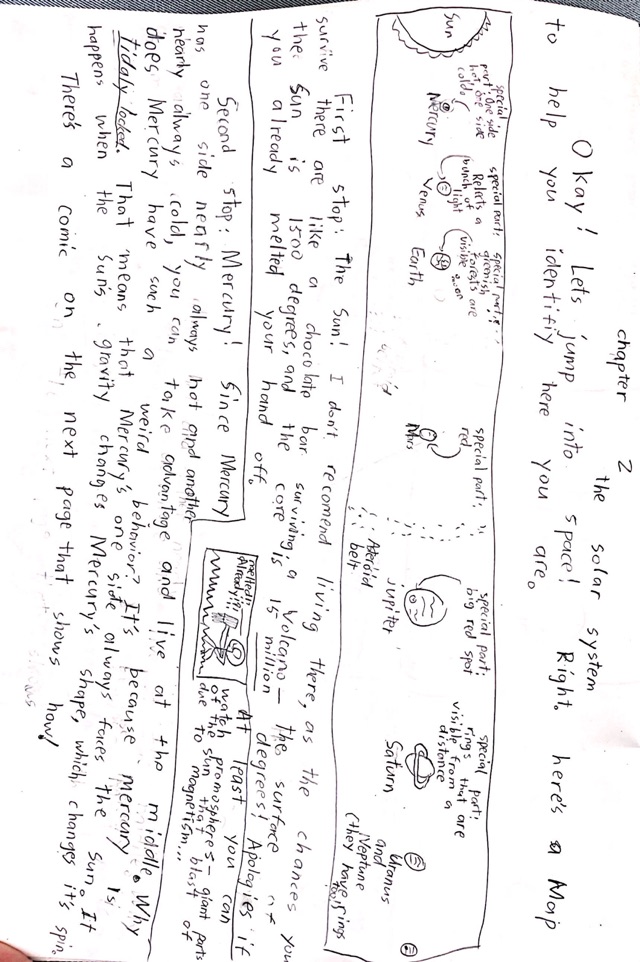 chapter 2 the solar system
Okay! Lets jump into space! Right. here's a Map
to help you identifiy here you are.
Sun
special
part: One side
hot one side
cold
Mercury
special part:
Relects a
bunch of
light
Venus
special part:
greenish
forests are
visible
Earth
special part:
red
Mars
Asteroid
belt
special part:
big red spot
Jupiter
special part:
rings that are
visible from a
distance
Saturn
Uranus
and
Neptune
(they have rings
too)
First stop: The Sun! I don't recomend living there, as the chances you
survive there are like a chocolate bar surviving a volcano– the surface of
the Sun is 1500 degrees, and the core is 15 million degrees! Apologies if
you already melted your hand off.
At least you can
watch promospheres– giant parts
of the sun that blast of
due to magnetism...
melted
Already!?!
Second stop: Mercury! Since Mercury
has one side nearly always hot and another
nearly always cold, you can take advantage and live at the middle. Why
does Mercury have such a weird behavior? It's because mercury is
tidaly locked. That means that Mercury's one side always faces the Sun. It
happens when the Sun's gravity changes Mercury's shape, which changes it's spin.
There's a comic on the next page that shows how!